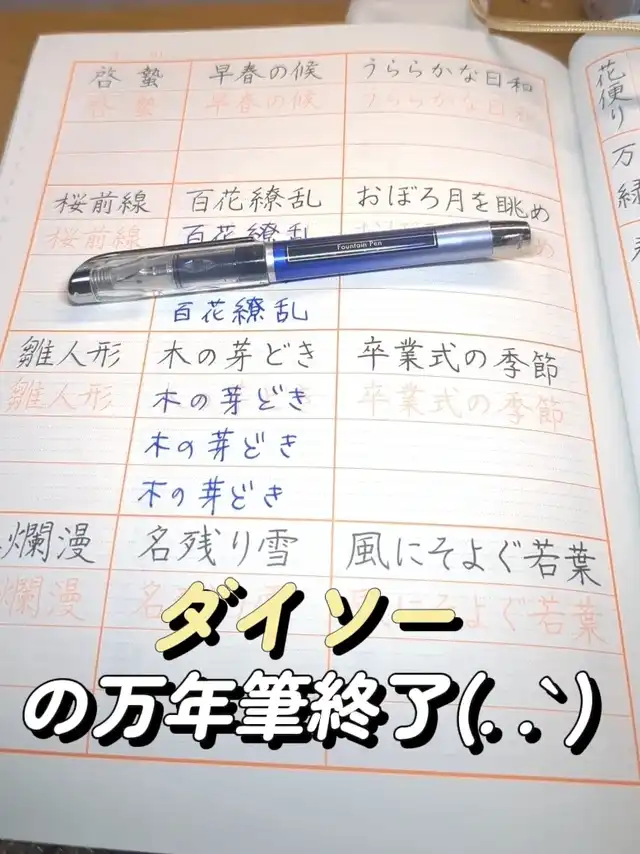 啓蟄 早春の候 うららかな日和
啓蟄 早春の候 うららかな日和
桜前線 百花繚乱 おぼろ月を眺め
桜前線 百花繚乱
Fountain Pen
百花繚乱
雛人形 木の芽どき 卒業式の季節
雛人形 木の芽どき 卒業式の季節
木の芽どき
木の芽どき
爛漫 名残り雪 風にそよぐ若葉
爛漫 名 風にそよぐ若葉
花便り
万
緑
ダイソー
の万年筆終了(. .`)